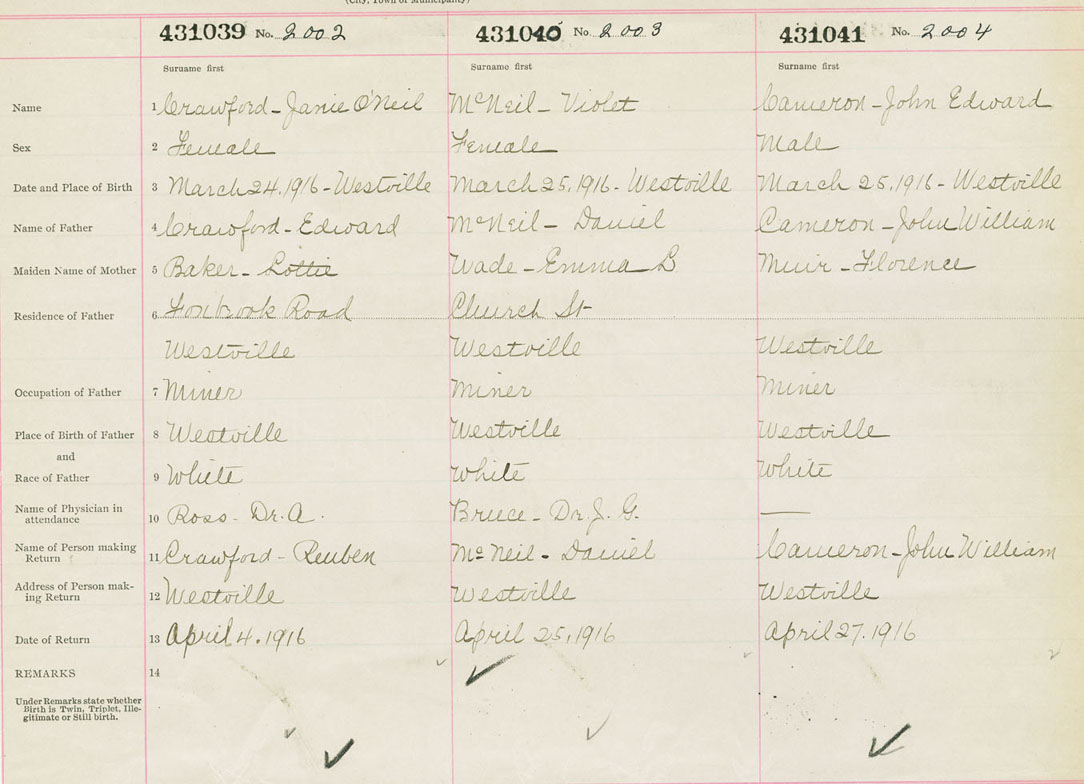 (City, Town or Municipality)
431039 No. 2002 431040 No. 2003 431041 No. 2004
Surname first Surname first Surname first
Name 1 Crawford - Janie O'Neil McNeil - Violet Cameron - John Edward
Sex 2 Female Female Male
Date and Place of Birth 3 March 24, 1916 - Westville March 25, 1916 - Westville March 25, 1916 - Westville
Name of Father 4 Crawford - Edward McNeil - Daniel Cameron - John William
Maiden Name of Mother 5 Baker - Lottie Wade - Emma B Muir - Florence
Residence of Father 6 Foxbrook Road Church St
Westville Westville Westville
Occupation of Father 7 Miner Miner Miner
Place of Birth of Father 8 Westville Westville Westville
and
Race of Father 9 White White White
Name of Physician in
attendance 10 Ross - Dr. A. Bruce - Dr. J. G. —
Name of Person making
Return 11 Crawford - Reuben McNeil - Daniel Cameron - John William
Address of Person mak-
ing Return 12 Westville Westville Westville
Date of Return 13 April 4, 1916 April 25, 1916 April 27, 1916
REMARKS 14
Under Remarks state whether
Birth is Twin, Triplet, Ille-
gitimate or Still birth.